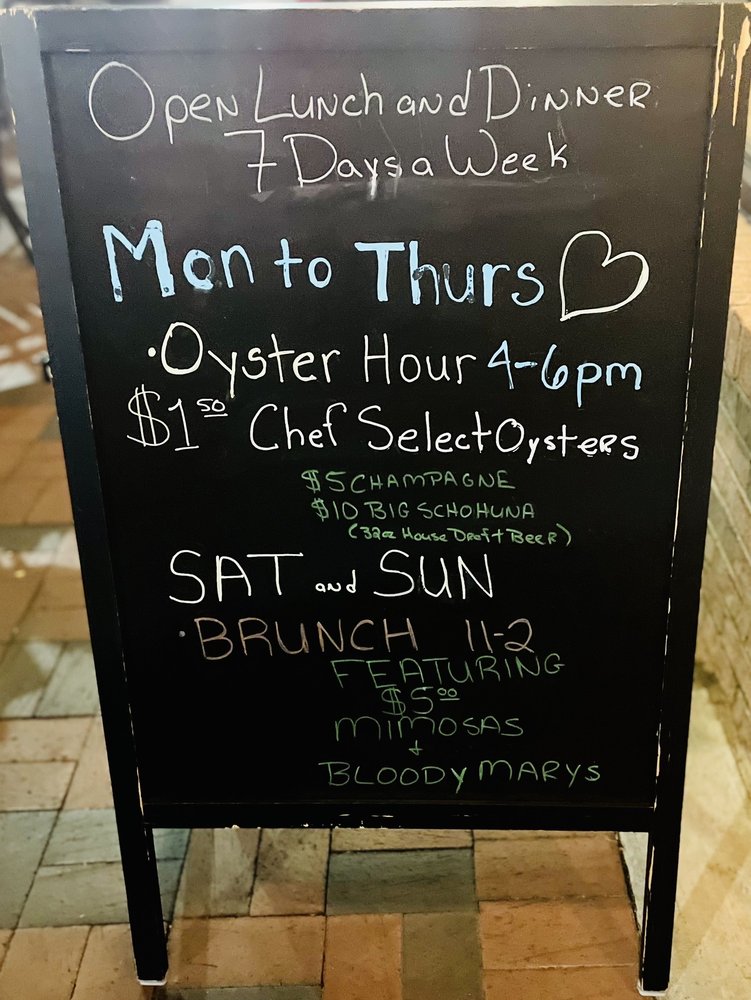 Open Lunch and Dinner
7 Days a Week
Mon to Thurs
• Oyster Hour 4-6pm
$1 50 Chef Select Oysters
$5 CHAMPAGNE
$10 BIG SCHOHUNA
(32oz House Draft Beer)
SAT and SUN
• BRUNCH 11-2
FEATURING
$5.00
MIMOSAS
+
BLOODY MARYS